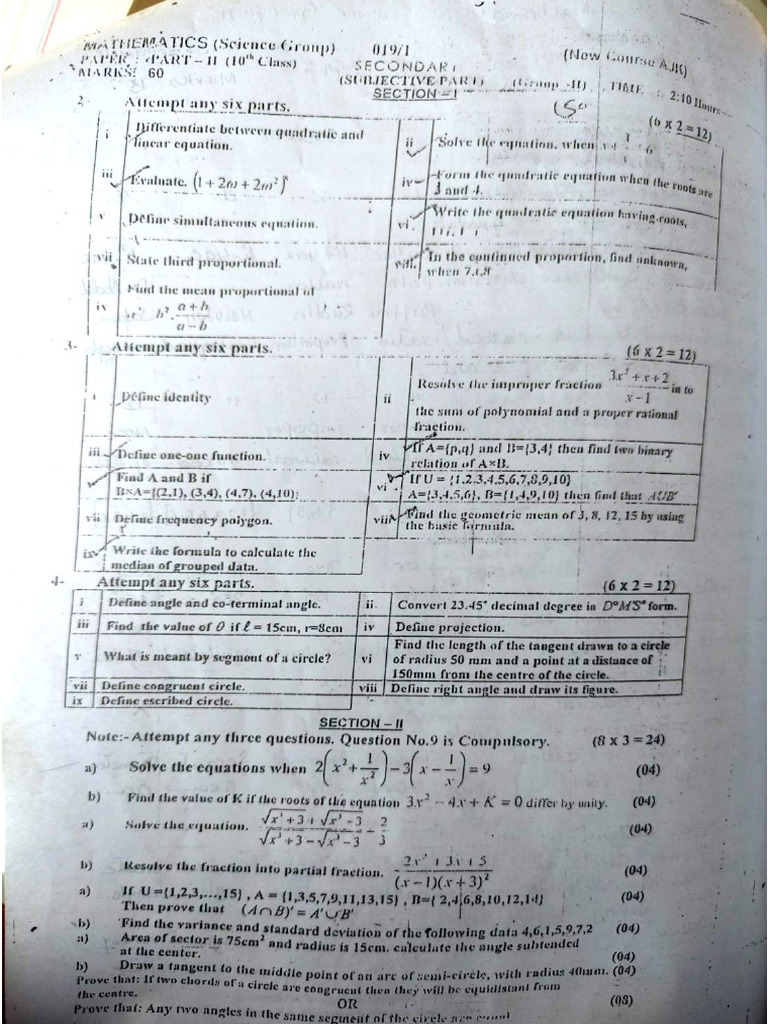 MATHEMATICS (Science Group) 019/1 (New Course AJK)
PAPER : PART – II (10th Class) SECONDARY
MARKS: 60 (SUBJECTIVE PART) (Group -II) TIME : 2:10 Hours
SECTION – I
2- Attempt any six parts. (6 x 2 = 12)
i Differentiate between quadratic and linear equation.
ii Solve the equation, when
iii Evaluate. (1 + 2ω + 2ω²)
iv Form the quadratic equation when the roots are 3 and 4.
v Define simultaneous equation.
vi. Write the quadratic equation having roots,
vii State third proportional.
viii. In the continued proportion, find unknown, when 7,4,8
ix Find the mean proportional of b², a + b / a – b
3- Attempt any six parts. (6 x 2 = 12)
i Define identity
ii Resolve the improper fraction 3x² + x + 2 / x – 1 in to
the sum of polynomial and a proper rational
fraction.
iii Define one-one function.
iv If A={p,q} and B={3,4} then find two binary
relation of A×B.
Find A and B if
B×A={(2,1), (3,4), (4,7), (4,10)
vi If U = {1,2,3,4,5,6,7,8,9,10}
A={3,4,5,6}, B={1,4,9,10} then find that A∪B'
vii Define frequency polygon.
viii Find the geometric mean of 3, 8, 12, 15 by using
the basic formula.
ix Write the formula to calculate the
median of grouped data.
4- Attempt any six parts. (6 x 2 = 12)
i Define angle and co-terminal angle.
ii Convert 23.45° decimal degree in D°M'S" form.
iii Find the value of θ if ℓ = 15cm, r=8cm
iv Define projection.
v What is meant by segment of a circle?
vi Find the length of the tangent drawn to a circle
of radius 50 mm and a point at a distance of
150mm from the centre of the circle.
vii Define congruent circle.
viii Define right angle and draw its figure.
ix Define escribed circle.
SECTION – II
Note:- Attempt any three questions. Question No.9 is Compulsory. (8 x 3 = 24)
a) Solve the equations when 2(x² + 1/x²) – 3(x – 1/x) = 9 (04)
b) Find the value of K if the roots of the equation 3x² – 4x + K = 0 differ by unity. (04)
a) Solve the equation. (04)
b) Resolve the fraction into partial fraction. 2x² + 3x + 5 / (x – 1)(x + 3)² (04)
a) If U ={1,2,3,...,15} , A = {1,3,5,7,9,11,13,15} , B={ 2,4,6,8,10,12,14} (04)
Then prove that (A∩B)' = A'∪B'
b) Find the variance and standard deviation of the following data 4,6,1,5,9,7,2 (04)
a) Area of sector is 75cm² and radius is 15cm. calculate the angle subtended
at the center. (04)
b) Draw a tangent to the middle point of an arc of semi-circle, with radius 40mm. (04)
Prove that: If two chords of a circle are congruent then they will be equidistant from
the centre. (08)
OR
Prove that: Any two angles in the same segment of the circle are equal